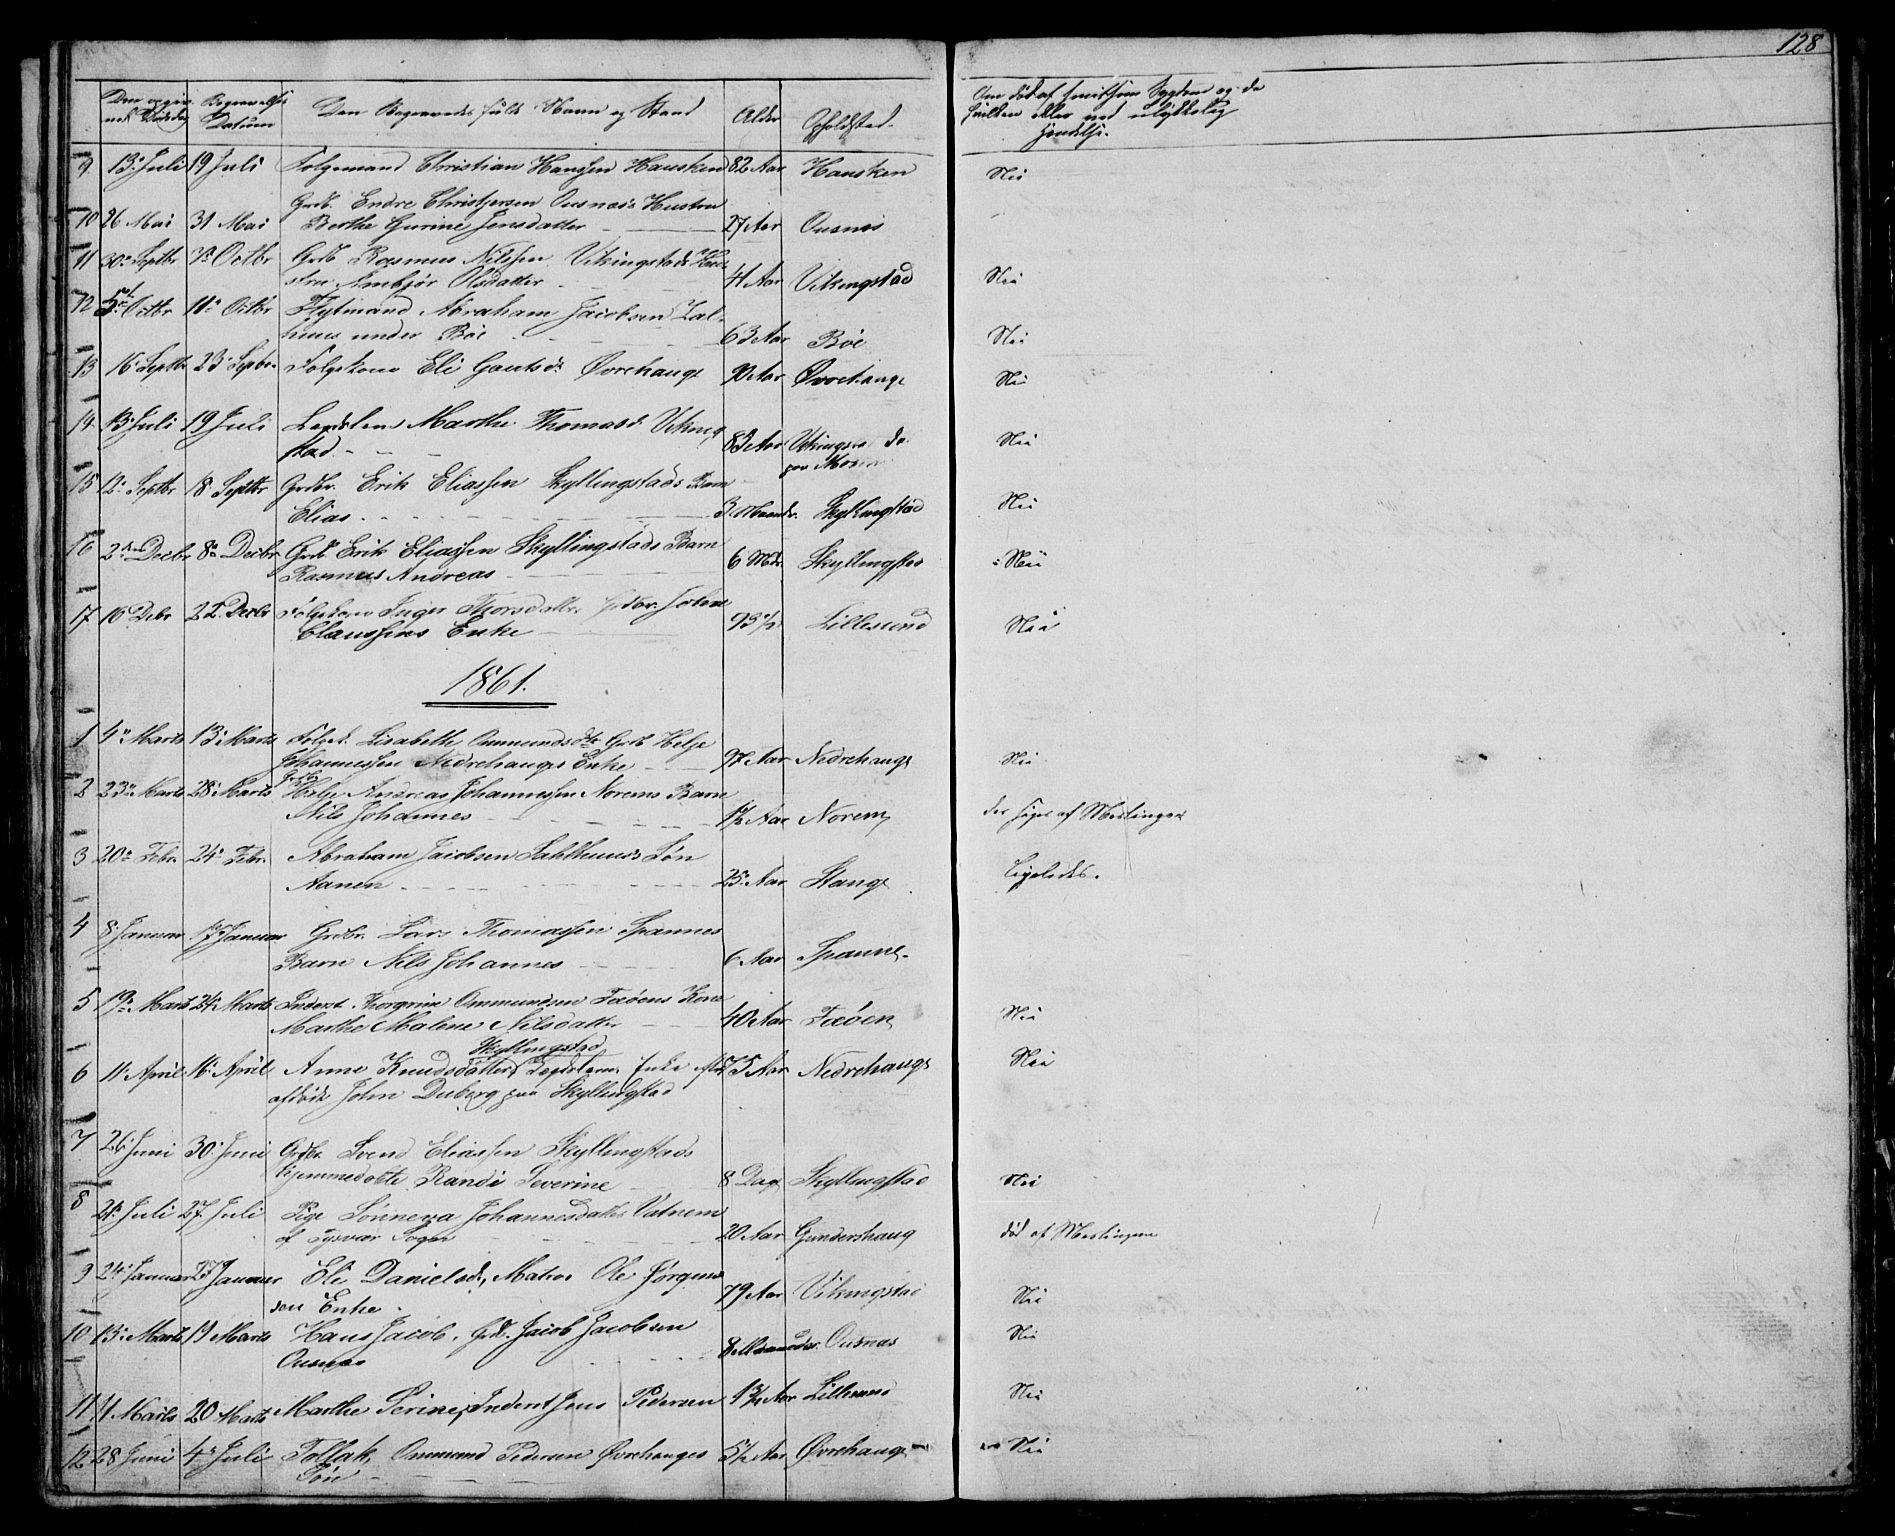 128
Den opgiv- Begravelses Den Begravedes fulde Navn og Stand Alder Opholdssted. Om død af smitsom Sygdom og da
ne Dødsdag Datum hvilken eller ved ulykkelig
Hændelse.
9 13 Juli 19 Juli Folgemand Christian Hansen Hausken 82 Aar Hausken Nei
Grdb. Endre Christophersen Ousnæs Hustru
10 26 Mai 31 Mai Berthe Gurine Jensdatter 27 Aar Ousnæs
11 30 Septbr 7 Octbr Grdb Rasmus Nilssen Vikingstads Hu-
stru Ambjør Olsdatter 41 Aar Vikingstad Nei
12 5 Octbr 11 Octbr Flytmand Abraham Jacobsen Sal-
huus under Bøe 63 Aar Bøe Nei
13 16 Septbr 23 Septbr. Folgekone Eli Gautsd. Øvrehauge 90 Aar Øvrehauge Nei
14 13 Juli 19 Juli Marthe Thomasd. Viking
stad. 83 Aar Nei
15 12 Septbr 18 Septbr Grdbr. Erik Eliassen Skyllingstads Barn
Elias 3 Maander. Skyllingstad Nei
16 2 Decbr 8 Decbr Grdb Erik Eliassen Skyllingstads Barn
Rasmus Andreas 6 Mdr. Skyllingstad Nei
17 16 Debr 22 Decbr Folgekone Inger Thorsdatter John
Claussens Enke 93 1/2 Lillesund Nei
1861.
1 4 Marts 13 Marts Folgek. Lisabeth Ommundsdtr Grdb Helje
Johannessen Nedrehaugs Enke 97 Aar Nedrehauge Nei
Grdb
2 23 Marts 28 Marts Helje Andreas Johannessen Norems Barn
Nils Johannes 1 1/2 Aar Norem af Meslinger
3 20 Febr. 24 Febr. Abraham Jacobsen Sahlhuus's Søn
Aanen 25 Aar Stange Ligeledes.
4 8 Januar 17 Januar Grdbr. Lars Thomassen Spannes
Barn Nils Johannes 6 Aar Spanne.
5 19 Marts 24 Marts Inderst. Thorgrim Ommundsen Feøens Kone
Marthe Malene Nilsdatter 40 Aar Feøen Nei
Skyllingstad
6 11 April 16 April Anne Knudsdatter Enke efter 75 Aar Nedrehaugs Nei
afdøde John Duberg paa Skyllingstad
7 26 Juni 30 Juni Grdbr. Svend Eliassen Skyllingstads
hjemmedøbte Randi Severine 8 Dage Skyllingstad Nei
8 21 Juli 27 Juli Pige Sønneva Johannesdatter Vatnem
af Tysvær Sogn 20 Aar Gundershaug død af Meslingerne
9 24 Januar 27 Januar Eli Danielsd., Matros Ole Jørgen-
sen Enke. 79 Aar Vikingstad Nei
10 13 Marts 19 Marts Hans Jacob, Grdb. Jacob Jacobsen
Ousnæs 8 Maaneder. Ousnæs Nei
11 11 Marts 20 Marts Marthe Serine, Inderst Jens Pedersen 1 3/4 Aar Lillesund Nei
12 28 Juni 4 Juli Tollak, Ommund Pedersen Øvrehauges 5 1/2 Aar Øvrehauge Nei
Søn